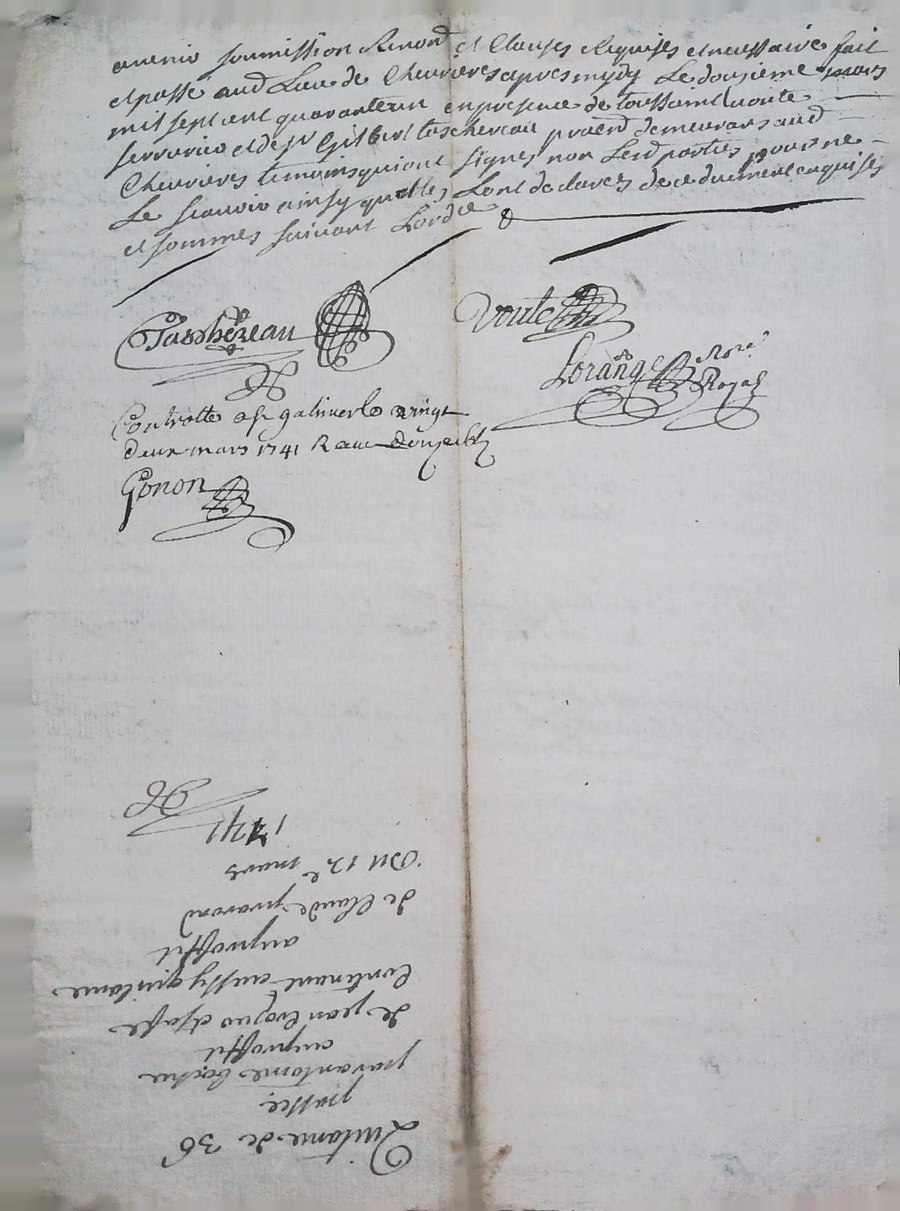 avenir soumission Renond et Clauses Requises et necessaire fait
et passe aud Lieu de Chevrieres apres mydy Le douzieme mars
mil sept cent quarante un en presence de toussaint voute
serrurier et de sr Gilbert taschereau demeurans aud
Chevrieres temoins qui ont signes non Lesd parties pour ne
Le scavoir ainsy quelles Lont declarez de ce duement enquises
et sommes suivant Lordre
Taschereau
Voute
Lorange Nore Royal
Controlle a St galmier le vingt
deux mars 1741 R
Gonon
Quitance de 36
passee
par antoine
au proffit
de jean et sa fe
Contenant aussy quitance
au proffit
de Claude
Du 12e mars
1741